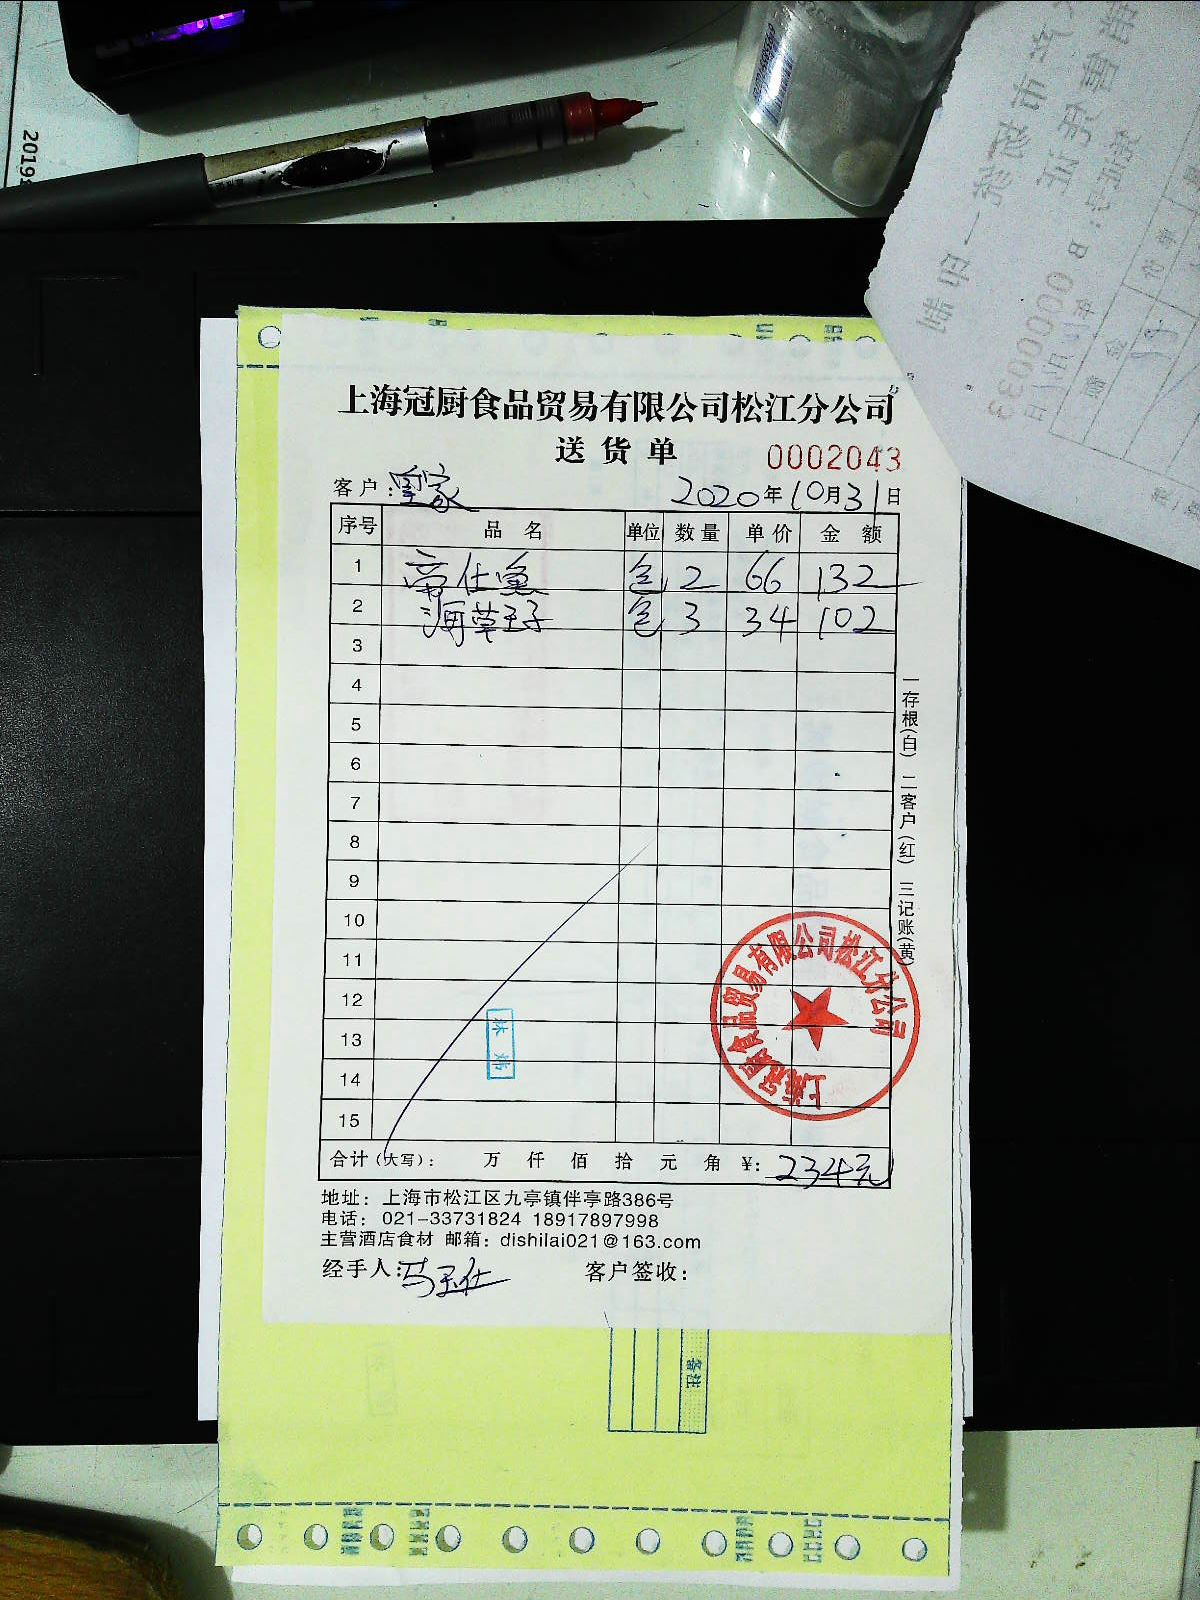 2019
上海冠厨食品贸易有限公司松江分公司
送货单 0002043
客户: 2020年10月31日
序号 品名 单位 数量 单价 金额
1 帝仕 包 2 66 132
2 海草王子 包 3 34 102
3
4
5
6
7
8
9
10
11
12
13
14
15
合计(大写): 万 仟 佰 拾 元 角 ¥: 234元
一存根(白) 二客户(红) 三记账(黄)
上海冠厨食品贸易有限公司松江分公司
地址: 上海市松江区九亭镇伴亭路386号
电话: 021-33731824 18917897998
主营酒店食材 邮箱: dishilai021@163.com
经手人: 客户签收:
备注
0000033